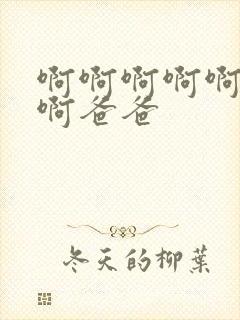 啊啊啊啊啊
啊爸爸
冬天的柳葉